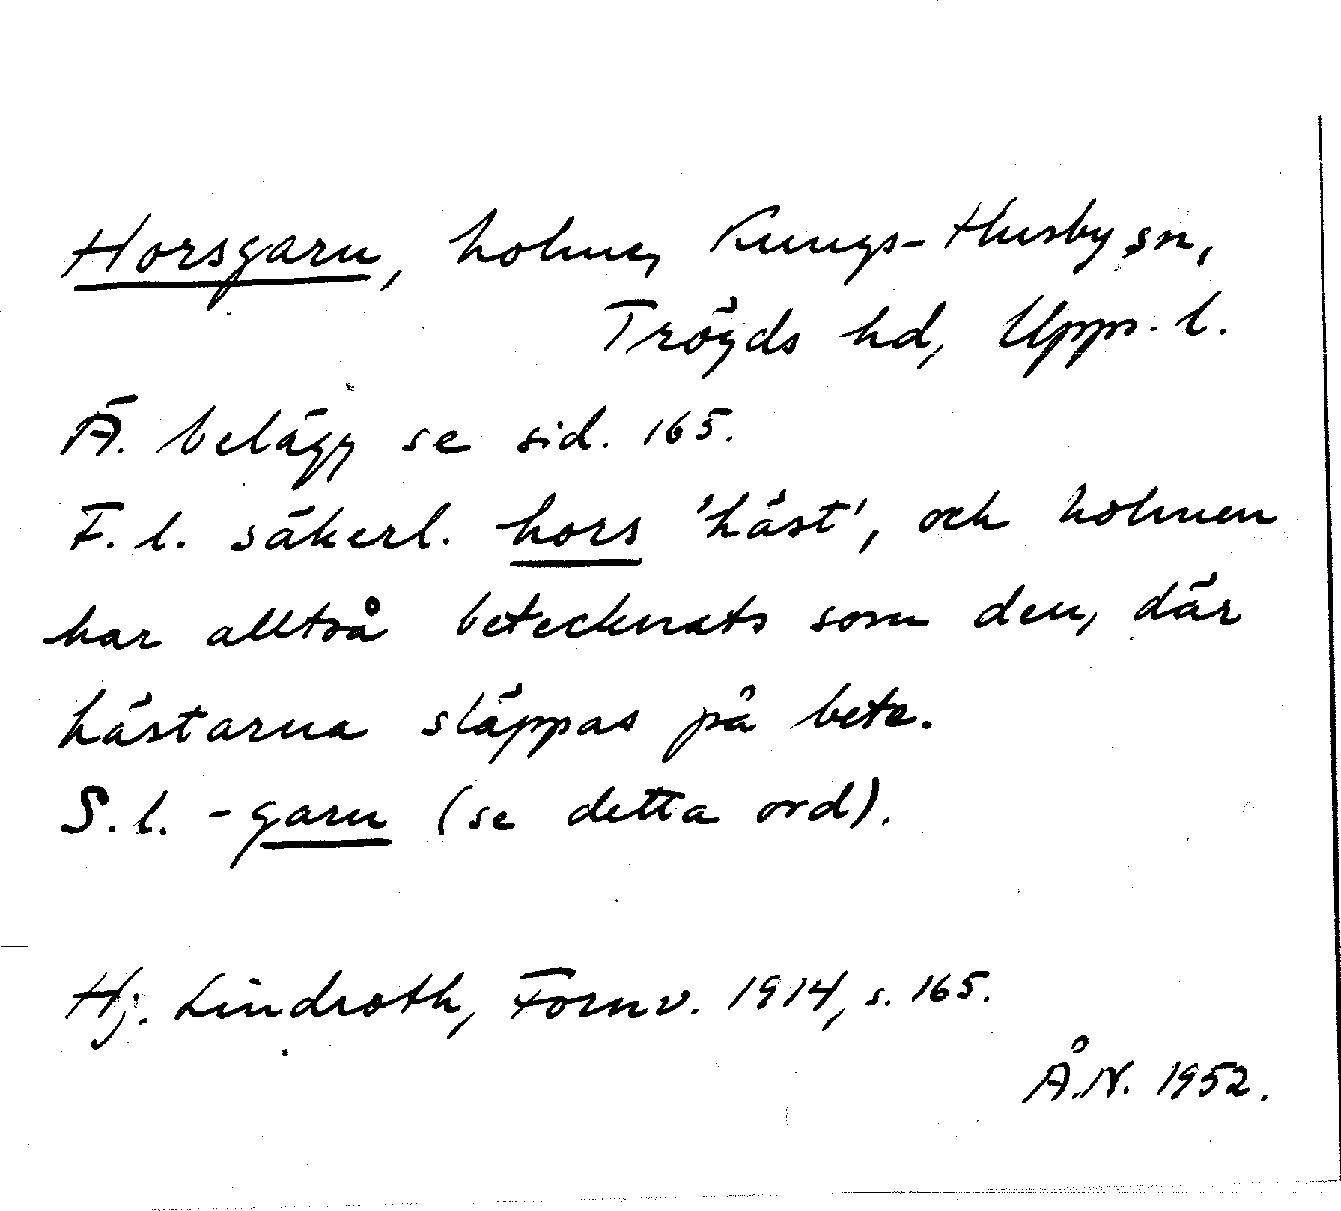 Horsgarn, holme, Kungs-Husby sn,
Tröyds hd, Upps. l.
Ä. belägg se sid. 165.
F. l. säkerl. hors 'häst', och holmen
har alltså betecknats som den, där
hästarna släppas på bete.
S. l. -garn (se detta ord).
Hj. Lindroth, Fornv. 1914, s. 165.
Å.N. 1952.